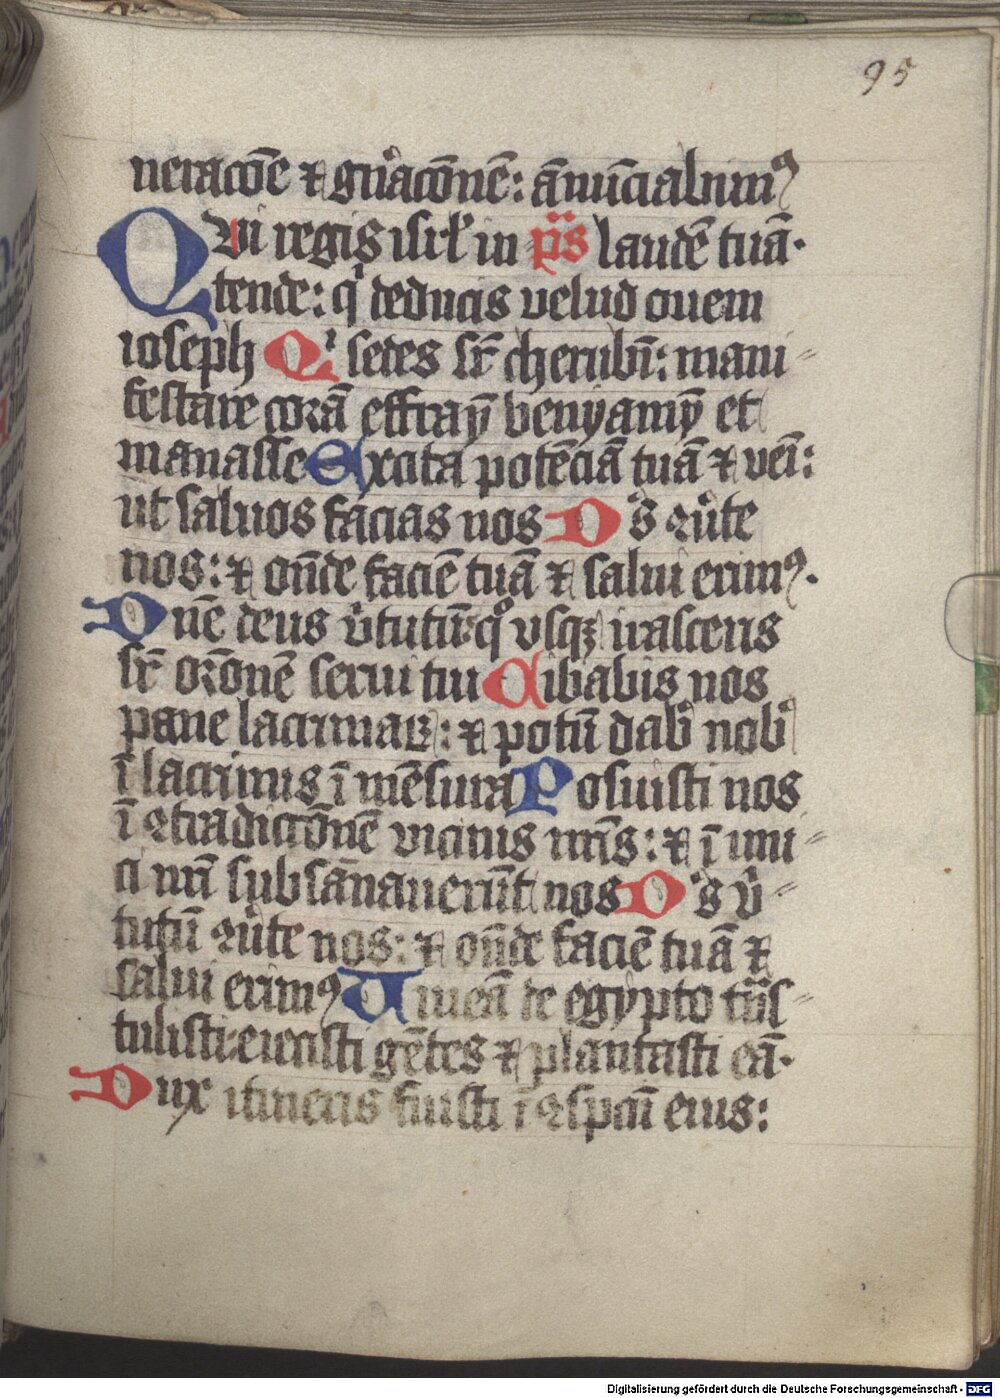 95
neracōe ⁊ gn̄acōnē: ān̄unciabimꝰ
Qvi regis isrl̄ in p̄s laudē tuā·
tende: qͥ deducis velud ouem
ioseph Qͥ sedes sr̄ cherubī: mani⸗
festare corā effraȳ benyamȳ et
manasse Excita potēciā tuā ⁊ vēi:
ut saluos facias nos Ds̄ ꝯuͥte
nos: ⁊ on̄de faciē tuā ⁊ salui erimꝰ·
Dn̄e deus vͥtutū: qͦ vsqꝫ irasceris
sr̄ or̄onē serui tui Cibabis nos
pane lacrimaꝝ: ⁊ potū dabͥ nobͥ
ī lacrimis ī mēsura Posuisti nos
ī ꝯtradictiōnē vicinis nr̄is: ⁊ ī imi⸗
ci nr̄i subsānauerūt nos Ds̄ vͥ⸗
tutū ꝯuͥte nos: ⁊ on̄de faciē tuā ⁊
salui erimꝰ Vineā de egypto trās⸗
tulisti: eiecisti gētes ⁊ plantasti eā·
Dux itineris fuisti ī ꝯspcū eius:
Digitalisierung gefördert durch die Deutsche Forschungsgemeinschaft - DFG